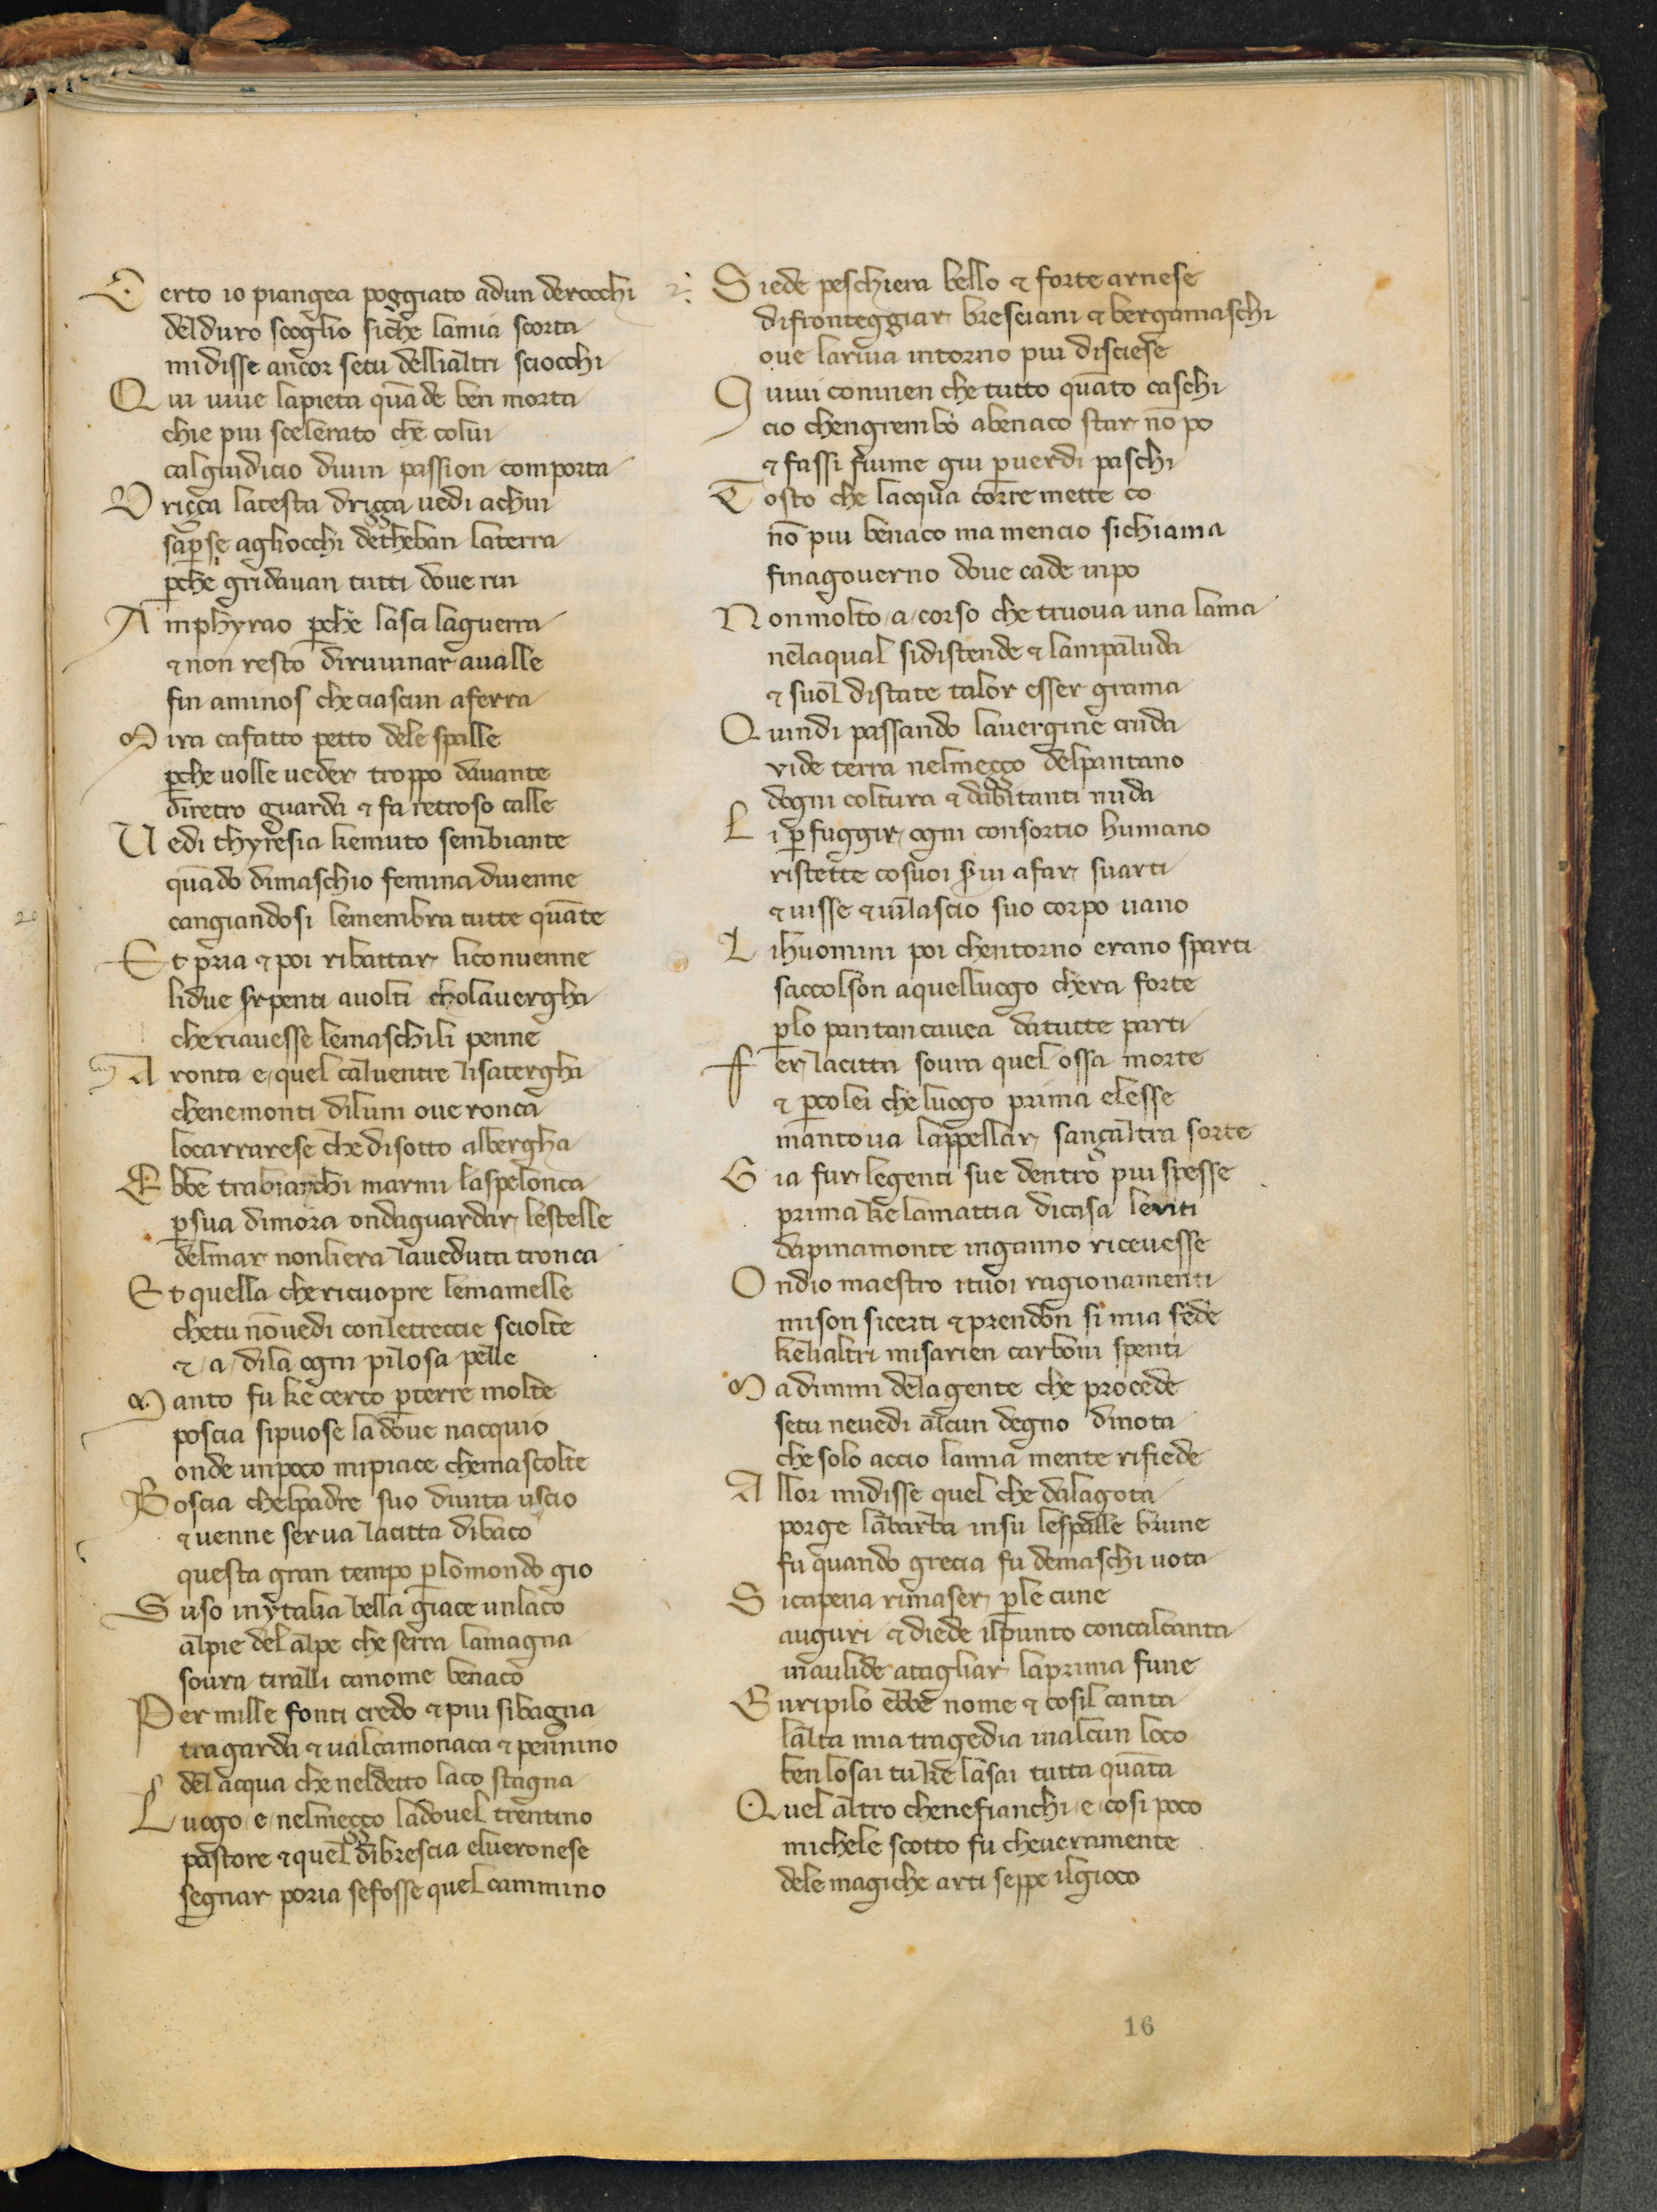 Certo io piangea poggiato adun derocchi
delduro scoglio siche lamia scorta
midisse ancor setu dellialtri sciocchi
Qui uiue lapieta quãde ben morta
chie piu scelerato che colui
calgiudicio diuin passion comporta
Driçça latesta driçça uedi achui
saꝑse agliocchi detheban laterra
ꝑche gridauan tutti doue rui
Amphyrao ꝑche lasci laguerra
⁊ non resto diruuinar aualle
fin aminos checiascun aferra
Mira cafatto petto dele spalle
ꝑche uolle ueder troppo dauante
diretro guarda ⁊ fa retroso calle
Vedi thyresia kemuto sembiante
quãdo dimaschio femina diuenne
cangiandosi lemembra tutte quãte
Et pria ⁊ poi ribattar liconuenne
lidue serpenti auolti cholauergha
cheriauesse lemaschili penne
Aronta e quel caluentre lisatergha
chenemonti diluni oue ronca
locarrarese che disotto albergha
Ebbe trabianchi marmi laspelonca
ꝑsua dimora ondaguardar lestelle
delmar nonliera laueduta tronca
Et quella chericuopre lemamelle
chetu nõuedi conletreccie sciolte
⁊ a dila ogni pilosa pelle
Manto fu ke cerco ꝑterre molte
poscia sipuose ladoue nacquio
onde unpoco mipiace chemascolte
Poscia chelpadre suo diuita uscio
⁊ uenne serua lacitta dibaco
questa gran tempo ꝑlomondo gio
Suso inytalia bella giace unlaco
alpie del alpe che serra lamagna
soura tiralli canome benaco
Per mille fonti credo ⁊ piu sibagna
tragarda ⁊ ualcamonaca ⁊ pennino
del acqua cheneldetto laco stagna
Luogo e nelmeçço ladouel trentino
pastore ⁊ quel dibrescia elueronese
segnar poria sefosse quel cammino
Siede peschiera bello ⁊ forte arnese
difronteggiar bresciani ⁊ bergamaschi
oue lariua intorno piu disciese
Quiui conuien che tutto quãto caschi
cio chengrembo abenaco star nõ po
⁊ fassi fiume giu ꝑuerdi paschi
Tosto che lacqua corre mette co
nõ piu benaco ma mencio sichiama
finagouerno doue cade inpo
Nonmolto a corso che truoua una lama
nelaqual sidistende ⁊ lampaluda
⁊ suol distate talor esser grama
Quindi passando lauergine cruda
vide terra nelmeçço delpantano
dogni coltura ⁊ dabitanti nuda
Li ꝑ fuggir ogni consortio humano
ristette cosuoi serui afar suarti
⁊ uisse ⁊ uilascio suo corpo uano
Lihuomini poi chentorno erano sparti
saccolson aquelluogo chera forte
ꝑlo pantancauea datutte parti
Fer lacitta soura quel ossa morte
⁊ ꝑcolei cheluogo prima elesse
mantoua lappellar sançaltra sorte
Gia fur legenti sue dentro piu spesse
prima ke lamattia dicasa
dapinamonte inganno riceuesse
Ondio maestro ituoi ragionamenti
mison sicerti ⁊ prendon si mia fede
kelialtri misarien carboni spenti
Ma dimmi delagente che procede
setu neuedi alcun degno dinota
che solo accio lamia mente rifiede
Allor midisse quel che dalagota
porge labarba insu lespalle brune
fu quando grecia fu demaschi uota
Sicapena rimaser ꝑle cune
auguri ⁊ diede ilpunto concalcanta
inaulide atagliar laprima fune
Euripilo ebbe nome ⁊ cosil canta
lalta mia tragedia inalcun loco
ben losai tu ke lasai tutta quãta
Quel altro chenefianchi e cosi poco
michele scotto fu cheueramente
dele magiche arti seppe ilgioco
16